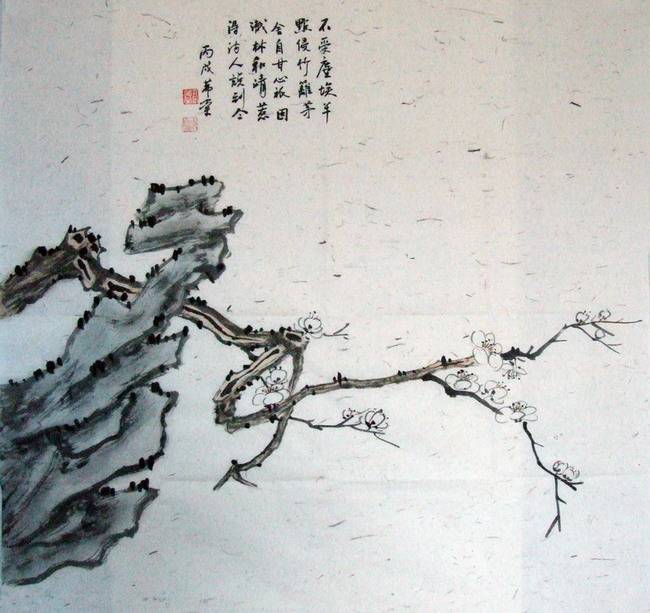 不受塵埃半
點侵竹籬茅
舍自甘心祇因
識林和靖惹
得詩人說到今
丙戌